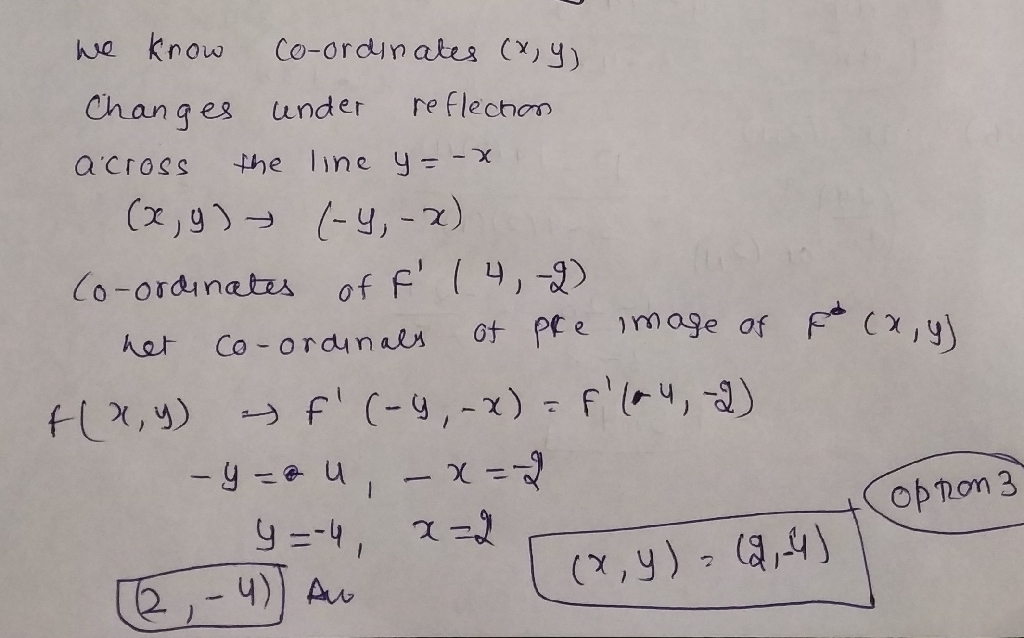 We know co-ordinates (x, y)
Changes under reflection
across the line y = -x
(x, y) → (-y, -x)
Co-ordinates of F' ( 4, -2)
Let co-ordinates of pre image of F (x, y)
f(x, y) → F' (-y, -x) = F' (4, -2)
-y = 4, -x = -2
y = -4, x = 2
option 3
(x, y) = (2, -4)
(2, -4) Ans